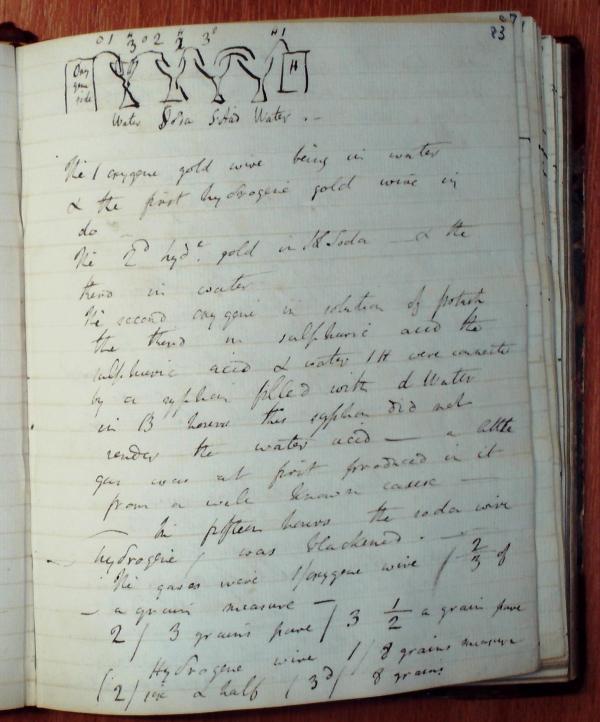 87
83
O 1 H 3 O 2 H 2 3 O H 1
Oxy
gene
side H
Water Soda S Acid Water . –
The 1 oxygene gold wire being in water
& the first hydrogene gold wire in
do –
The 2d hyd.e gold in Soda — & the
third in water
The second oxygene in solution of potash
the third in sulphuric acid the
sulphuric acid & water 1 H were connected
by a syphon filled with d Water
in hours this syphon did not
render the water acid — a little
gas was at first produced in it
from a well known cause —
— In fifteen hours the soda wire
hydrogene / was blackened . —
The gases were 1/oxygene wire / 2/3 of
– a grain measure –
2 / 3 grains pure / 3 1/2 a grain pure
Hydrogene wire 1 / 8 grains measure
( 2 / & half ( 3d ) 8 grains